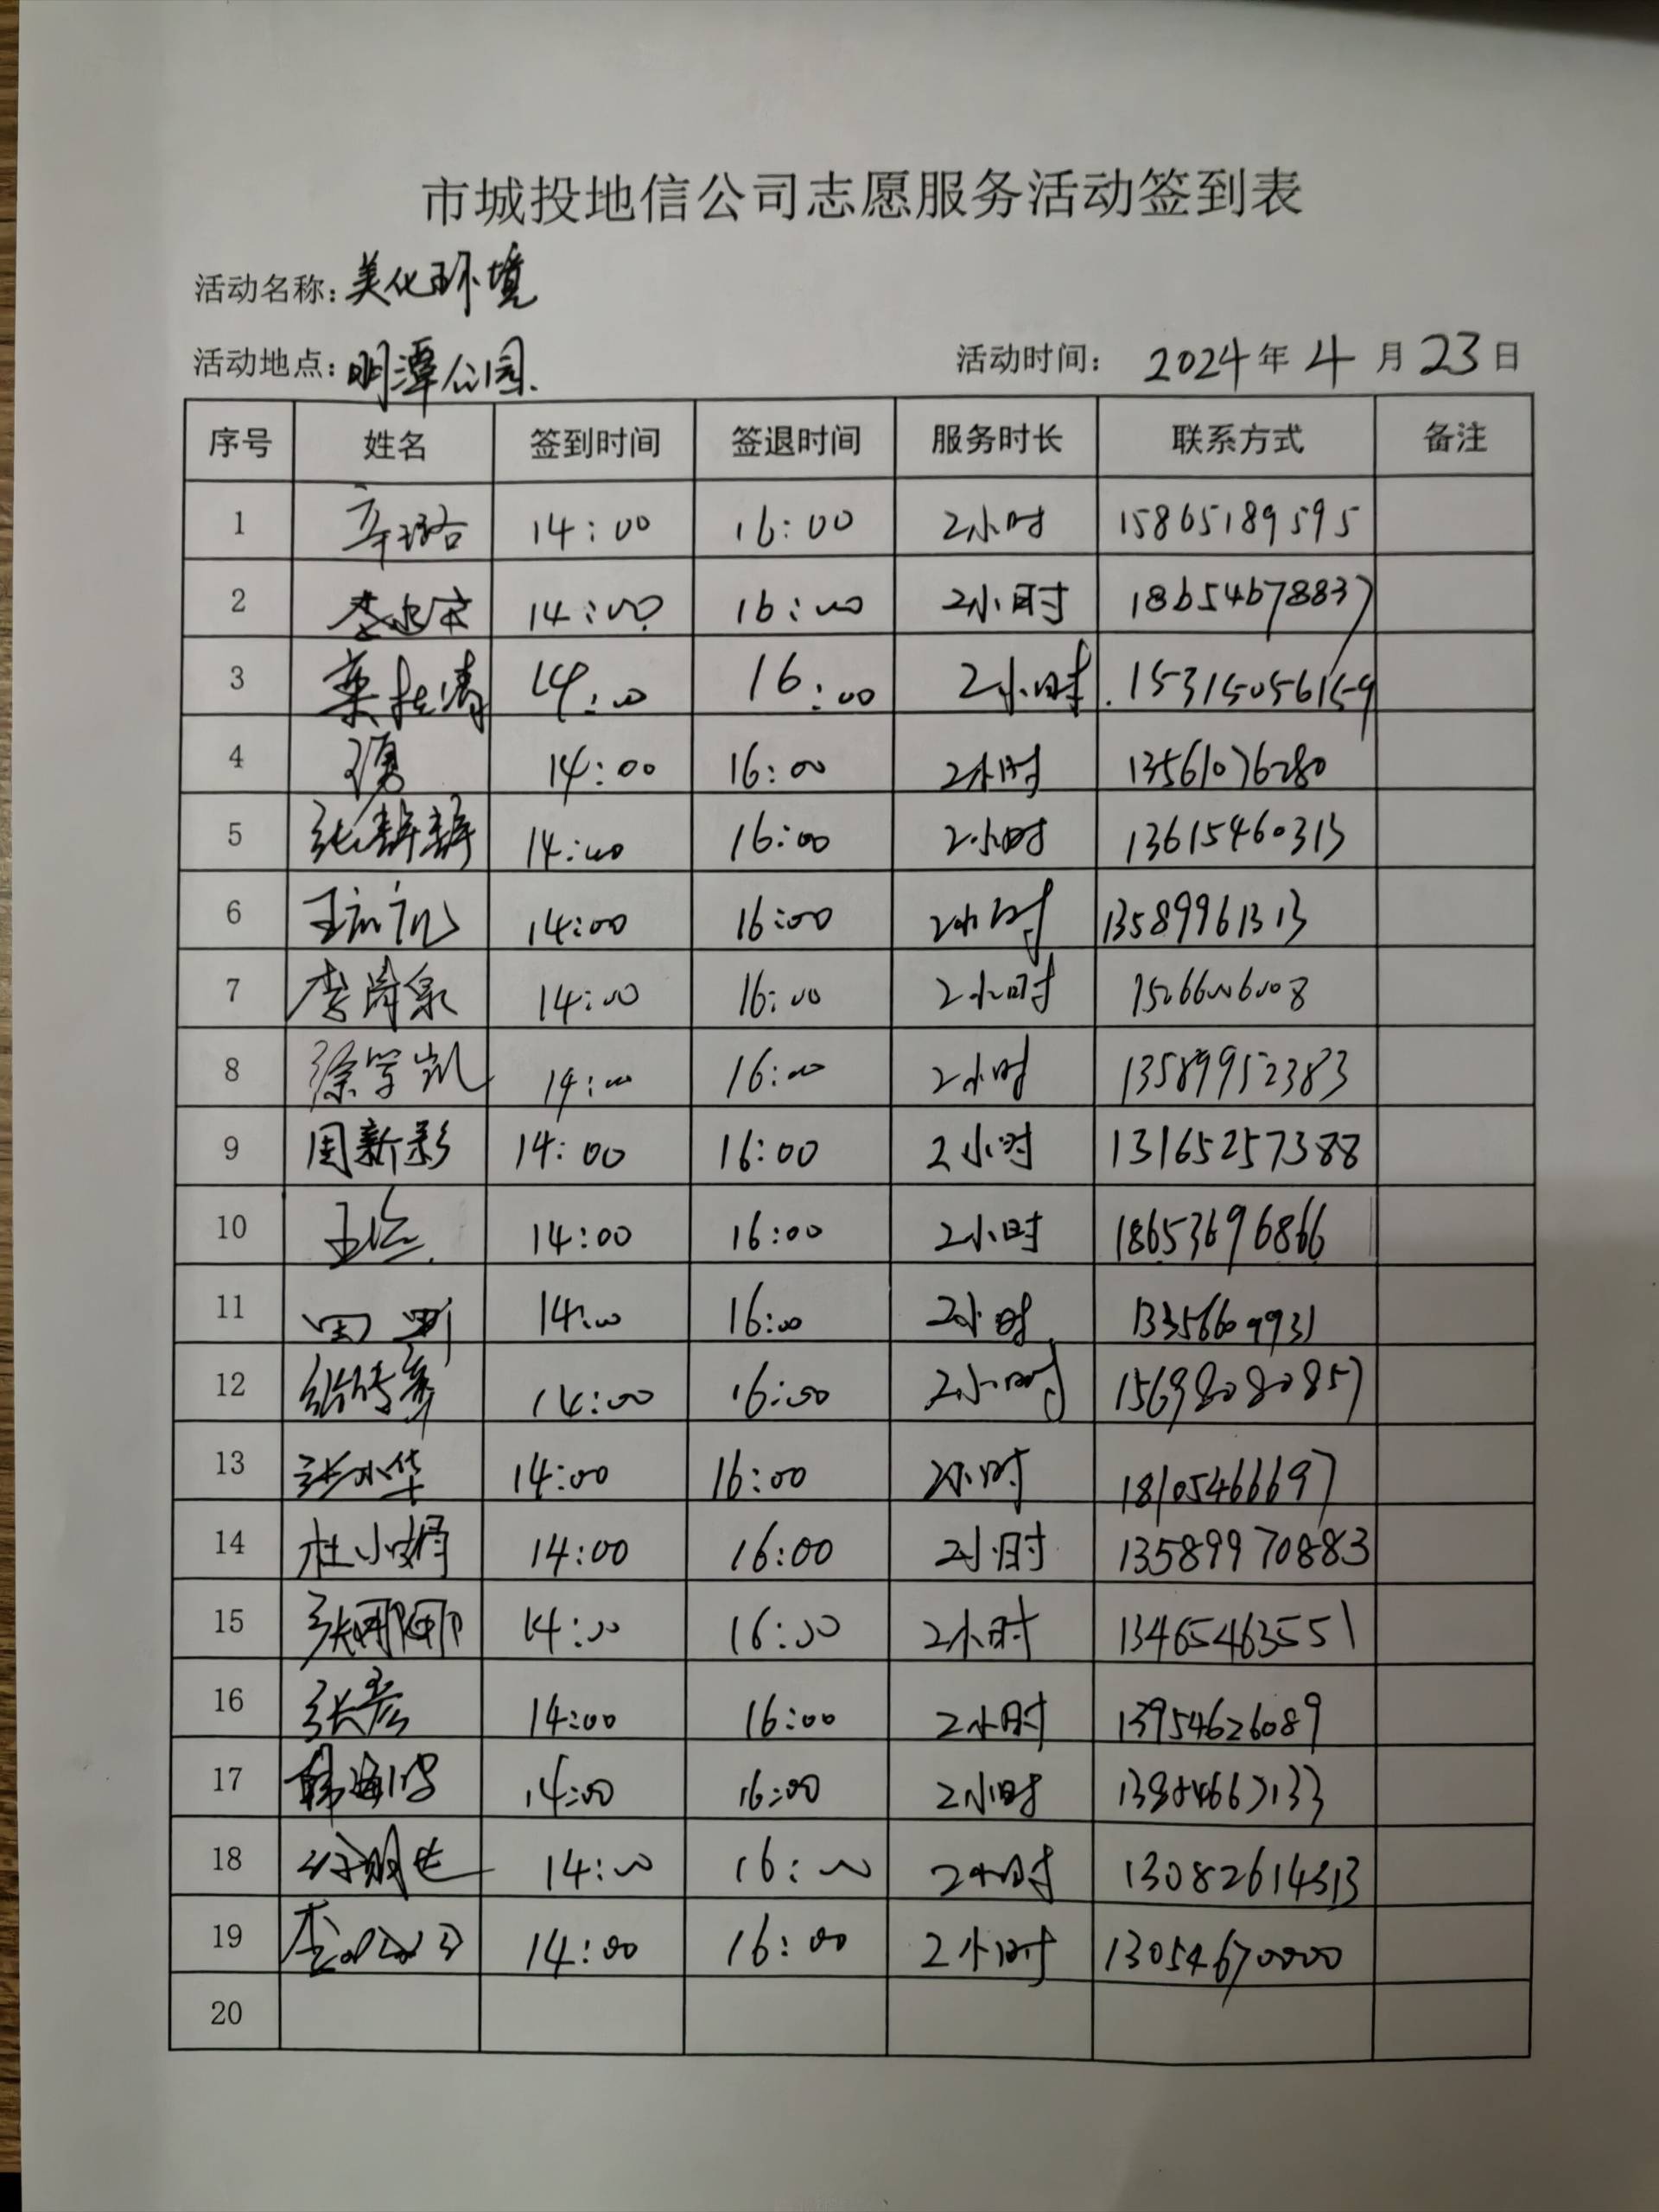 市城投地信公司志愿服务活动签到表
活动名称：美化环境
活动地点：明潭公园
活动时间： 2024年4月23日
序号 姓名 签到时间 签退时间 服务时长 联系方式 备注
1 辛璐 14:00 16:00 2小时 15865189595
2 14:00 16:00 2小时 18654678837
3 14:00 16:00 2小时 15315056159
4 14:00 16:00 2小时 13561076280
5 张静静 14:00 16:00 2小时 13615460313
6 14:00 16:00 2小时 13589961313
7 14:00 16:00 2小时 15266006008
8 徐学凯 14:00 16:00 2小时 13589952383
9 周新彩 14:00 16:00 2小时 13165257388
10 14:00 16:00 2小时 18653696866
11 14:00 16:00 2小时 13356609931
12 14:00 16:00 2小时 15698080857
13 张小华 14:00 16:00 2小时 18105466697
14 杜小娟 14:00 16:00 2小时 13589970883
15 张娜娜 14:00 16:00 2小时 13465463551
16 张彦 14:00 16:00 2小时 13954626089
17 14:00 16:00 2小时
18 14:00 16:00 2小时 13082614313
19 14:00 16:00 2小时 13054670000
20